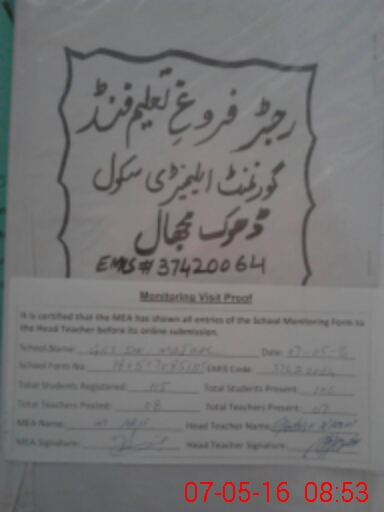 رجسٹر فروغ تعلیم فنڈ
گورنمنٹ ایلیمنٹری سکول
ڈھوک مچھال
EMIS# 37420064
Monitoring Visit Proof
It is certified that the MEA has shown all entries of the School Monitoring Form to
the Head Teacher before its online submission.
School Name: Date: 07-05-16
School Form No: EMIS Code: 37420064
Total Students Registered: 115 Total Students Present:
Total Teachers Posted: 08 Total Teachers Present: 07
MEA Name: Head Teacher Name:
MEA Signature: Head Teacher Signature:
07-05-16 08:53